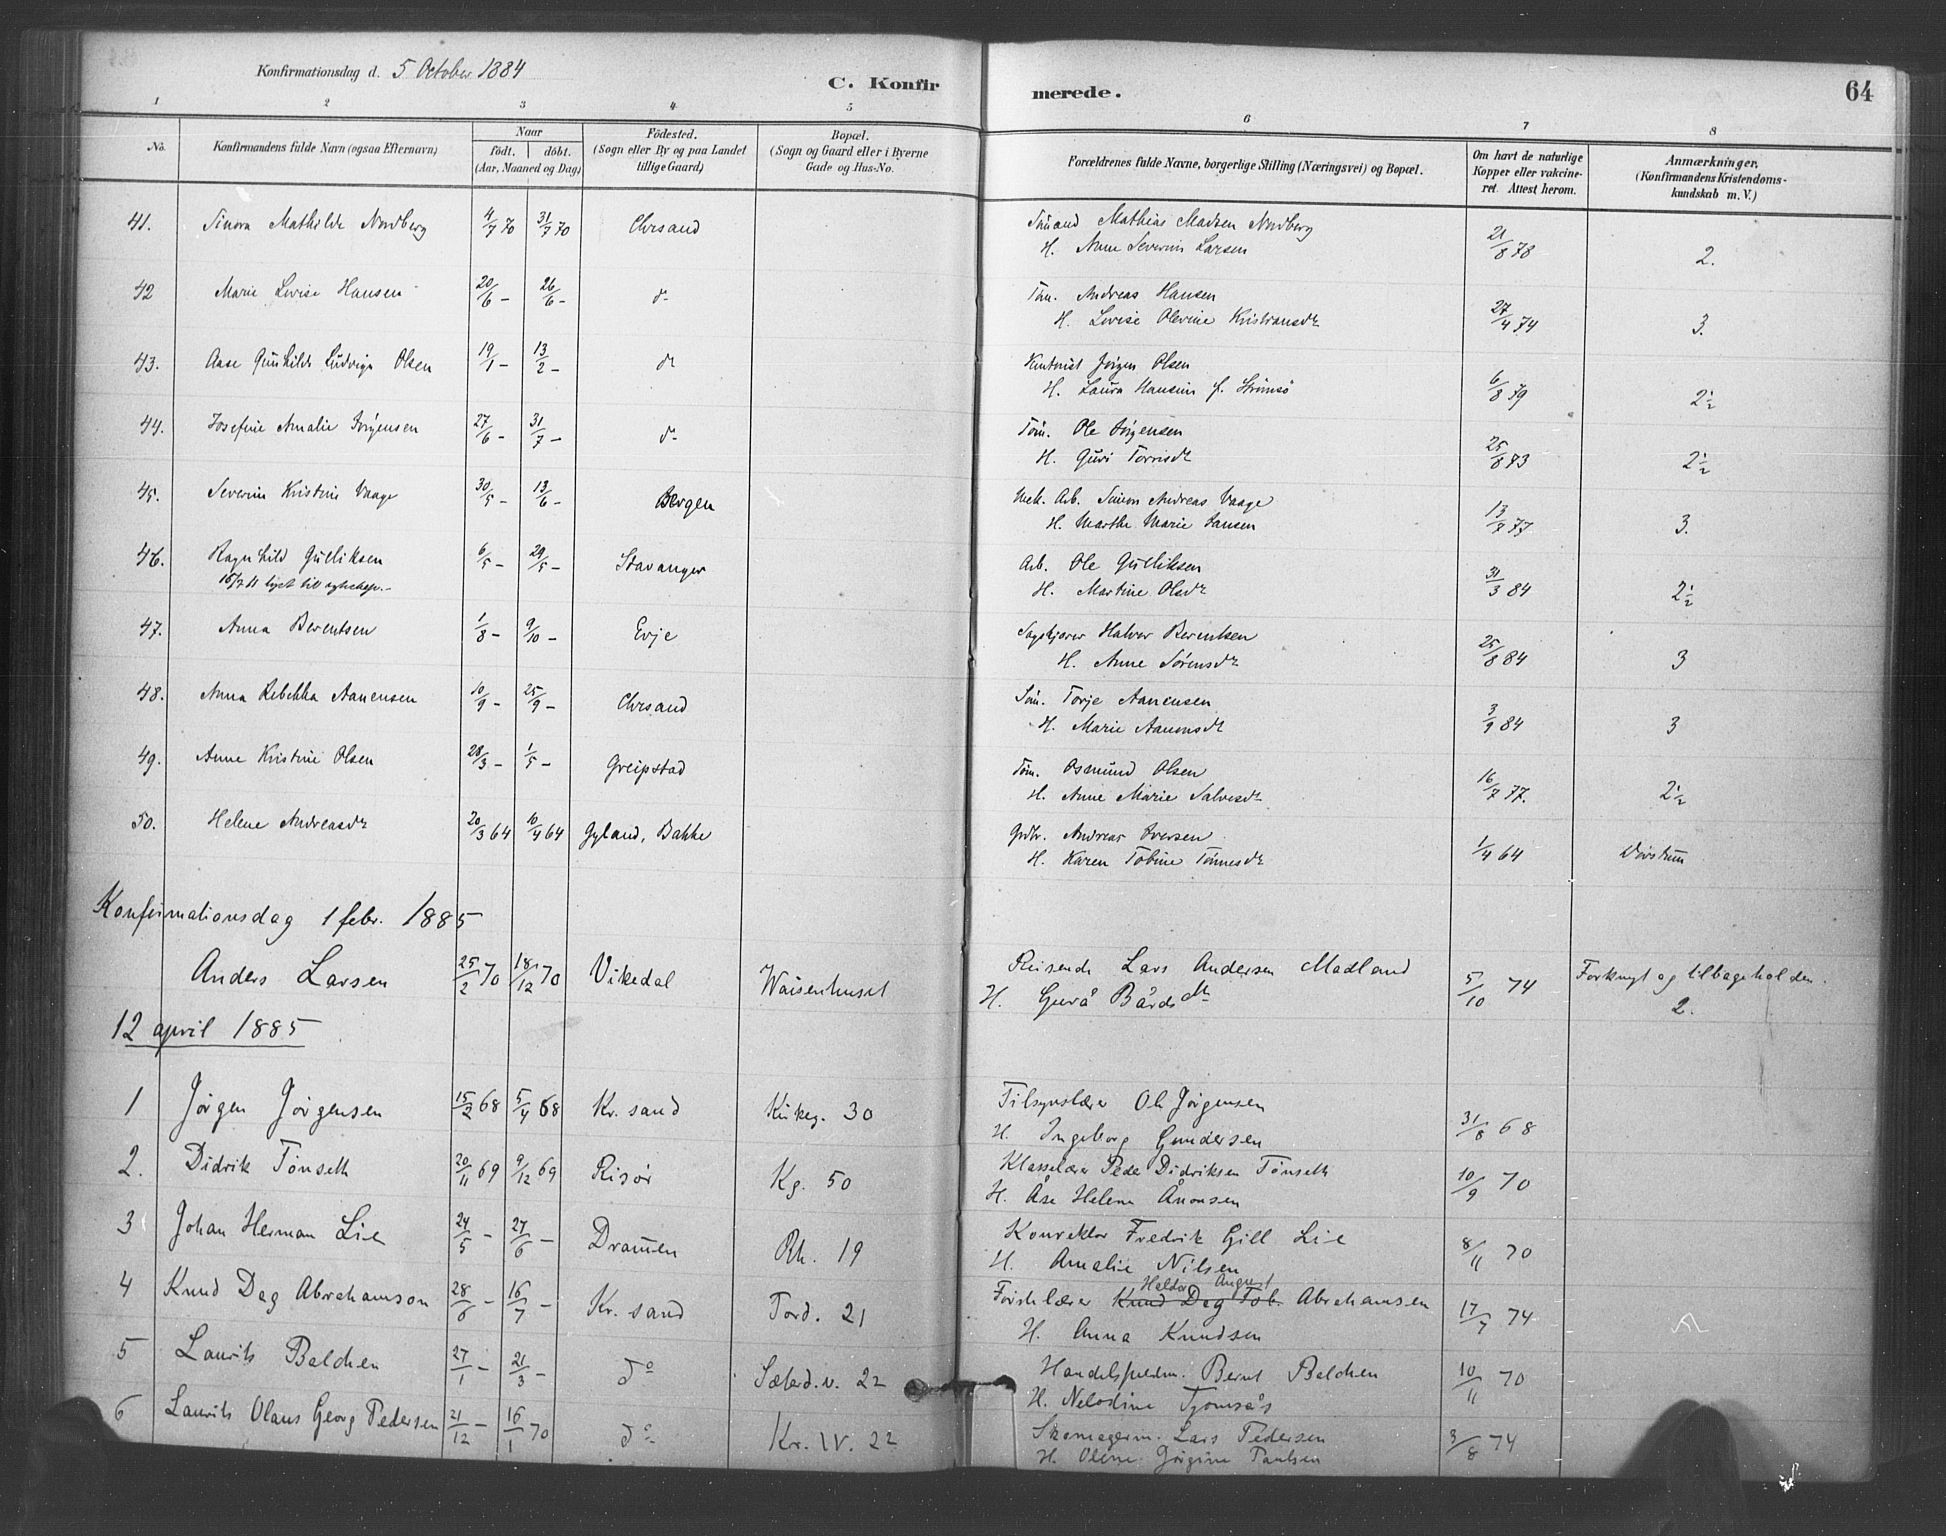 Konfirmationsdag d. 5 October 1884
C. Konfirmerede.
64
1 2 3 4 5 6 7 8
No.
Konfirmandens fulde Navn (ogsaa Efternavn)
Naar
födt. döbt.
(Aar, Maaned og Dag)
Födested.
(Sogn eller By og paa Landet tillige Gaard)
Bopæl.
(Sogn og Gaard eller i Byerne Gade og Hus-No.
Forældrenes fulde Navne, borgerlige Stilling (Næringsvei) og Bopæl.
Om havt de naturlige Kopper eller vakcineret. Attest herom.
Anmærkninger.
(Konfirmandens Kristendomskundskab m. V.)
41. Mathilde Nordberg 4/7 70 31/7 70 Chrsand Mathias Madsen Nordberg 21/8 78 2.
H. Anne Severine Larsen
42 Marie Lovise Hansen 20/6 - 26/6 - do Töm. Andreas Hansen 27/4 74 3.
H. Lovise Olevine Kristiansdr
43. Aase Gunhilde Ludviga Olsen 19/1 - 13/2 - do Kontorist Jörgen Olsen 6/8 79 2½
H. Laura Hansine f. Strömsö
44. Josefine Amalie Jörgensen 27/6 - 31/7 - do Töm. Ole Jörgensen 25/8 73 2½
H. Guri Torrisdr
45. Severine Kristine Vaage 30/5 - 13/6 - Bergen Mek. Arb. Simon Andreas Vaage 3.
H. Marthe Marie Jansen
46. Ragnhild Gulliksen 6/5 - 29/5 - Stavanger Arb. Ole Gulliksen 31/3 84 2½
H. Martine Olsdr
47. Anna Berentsen 1/8 - 9/10 - Evje Halvor Berentsen 25/8 84 3
H. Anne Sörensdr
48. Anna Rebekka Aanensen 10/9 - 25/9 - Chrsand Töm. Torje Aanensen 3/9 84 3
H. Marie Aanonsdr
49. Anne Kristine Olsen 28/3 - 1/5 - Greipstad Töm. Osmund Olsen 16/7 77. 2½
H. Anne Marie Salvesdr
50. Helene Andreasdr 20/3 64 10/4 64 Gyland, Bakke Grdbr. Andreas Iversen 1/4 64
H. Karen Tobine Tönnesdr
Konfirmationsdag 1 febr. 1885
Anders Larsen 25/2 70 18/12 70 Vikedal Waisenhuset Reisende Lars Andersen Madland 5/10 74 Forknyt og tilbageholden.
H. Gurå Bårdsdtr 2.
12 april 1885
1 Jörgen Jörgensen 15/2 68 5/4 68 Kr. sand Kirkeg. 30 Tilsynslærer Ole Jörgensen 31/8 68
H. Ingeborg Gundersen
2. Didrik Tönseth 20/11 69 9/12 69 Risör Kg. 50 Klasselærer Peder Didriksen Tönseth 10/9 70
H. Åse Helene Ånonsen
3 Johan Herman Lie 24/5 - 27/6 - Dramen Rh. 19 Konrektor Fredrik Gill Lie 8/11 70
H. Amalie Nilsen
4 Knud Dag Abrahamson 28/6 - 16/7 - Kr. sand Tord. 21 Förstelærer Knud Dag Tob. Haldor August Abrahamsen 17/7 74
H. Anna Knudsen
5 Laurits Balchen 27/1 - 21/3 - do Sæterd. v. 22 Handelsfuldm. Bernt Balchen 10/11 70
H. Nelodine Tjomsås
6 Laurits Olaus Georg Pedersen 21/12 - 16/1 70 do Kr. IV. 22 Skomagerm. Lars Pedersen 3/8 74
H. Oline Jörgine Paulsen